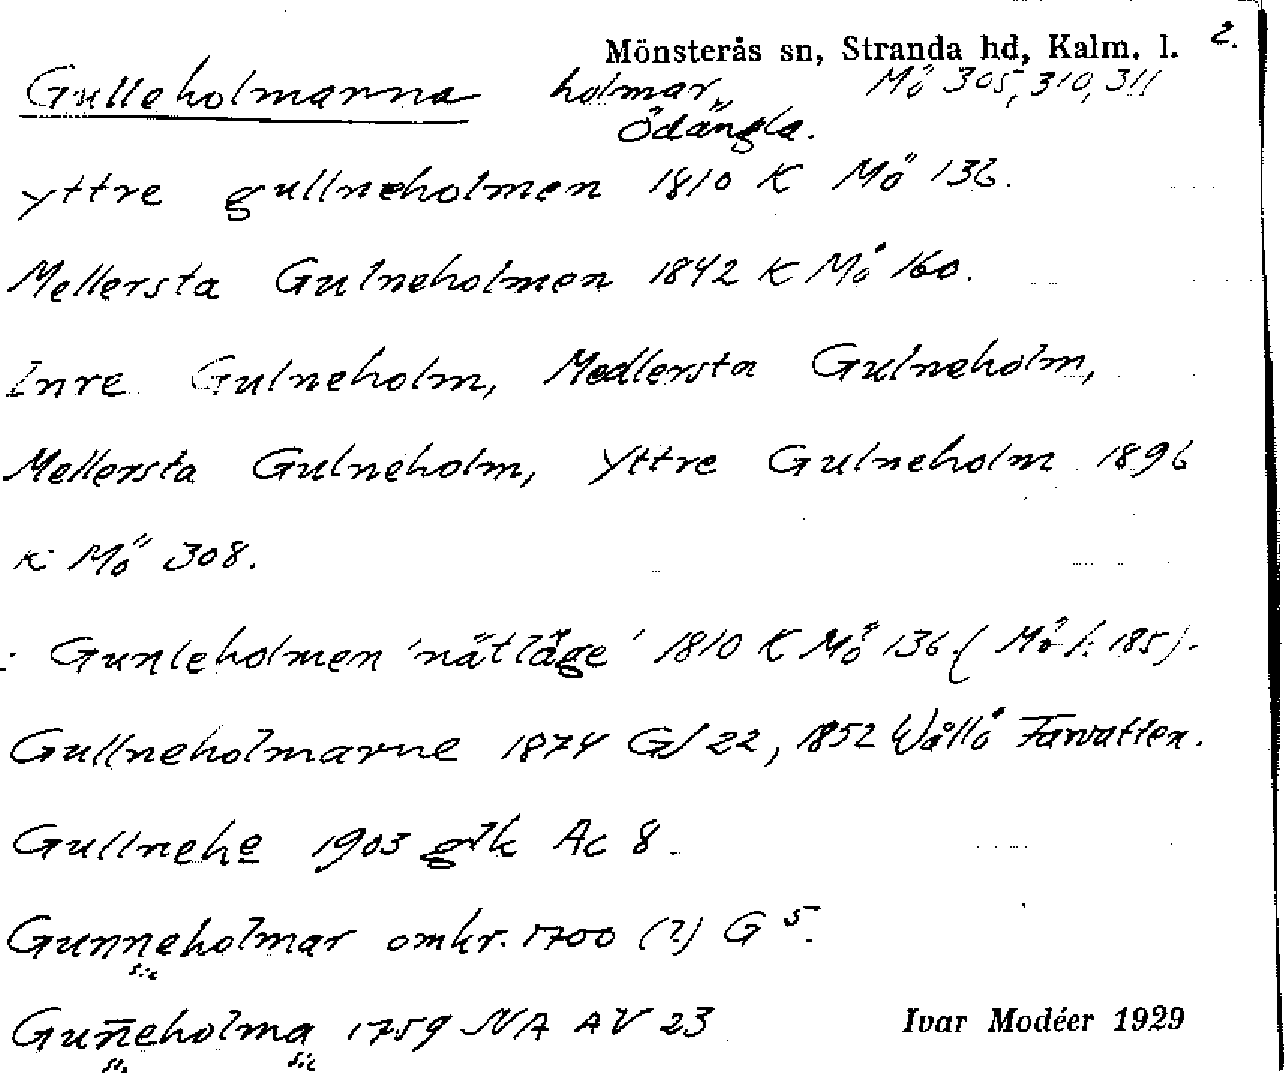 Mönsterås sn, Stranda hd, Kalm. l. 2.
Gulleholmarna holmar, Mö 305, 310, 311
Ödängla.
Yttre gullneholmen 1810 K Mö 136.
Mellersta Gulneholmen 1842 K Mö 160.
Inre Gulneholm, Medlersta Gulneholm,
Mellersta Gulneholm, Yttre Gulneholm 1896
K Mö 308.
: Gunleholmen 'nätläge' 1810 K Mö 136 ( Mö l: 185).
Gullneholmarne 1874 GS 22, 1852 Wållö Farvatten.
Gullnehe 1903 glk Ac 8.
Gunneholmar omkr. 1700 (?) G 5.
sic
Gun̄eholma 1759 NA AV 23
sic sic
Ivar Modéer 1929